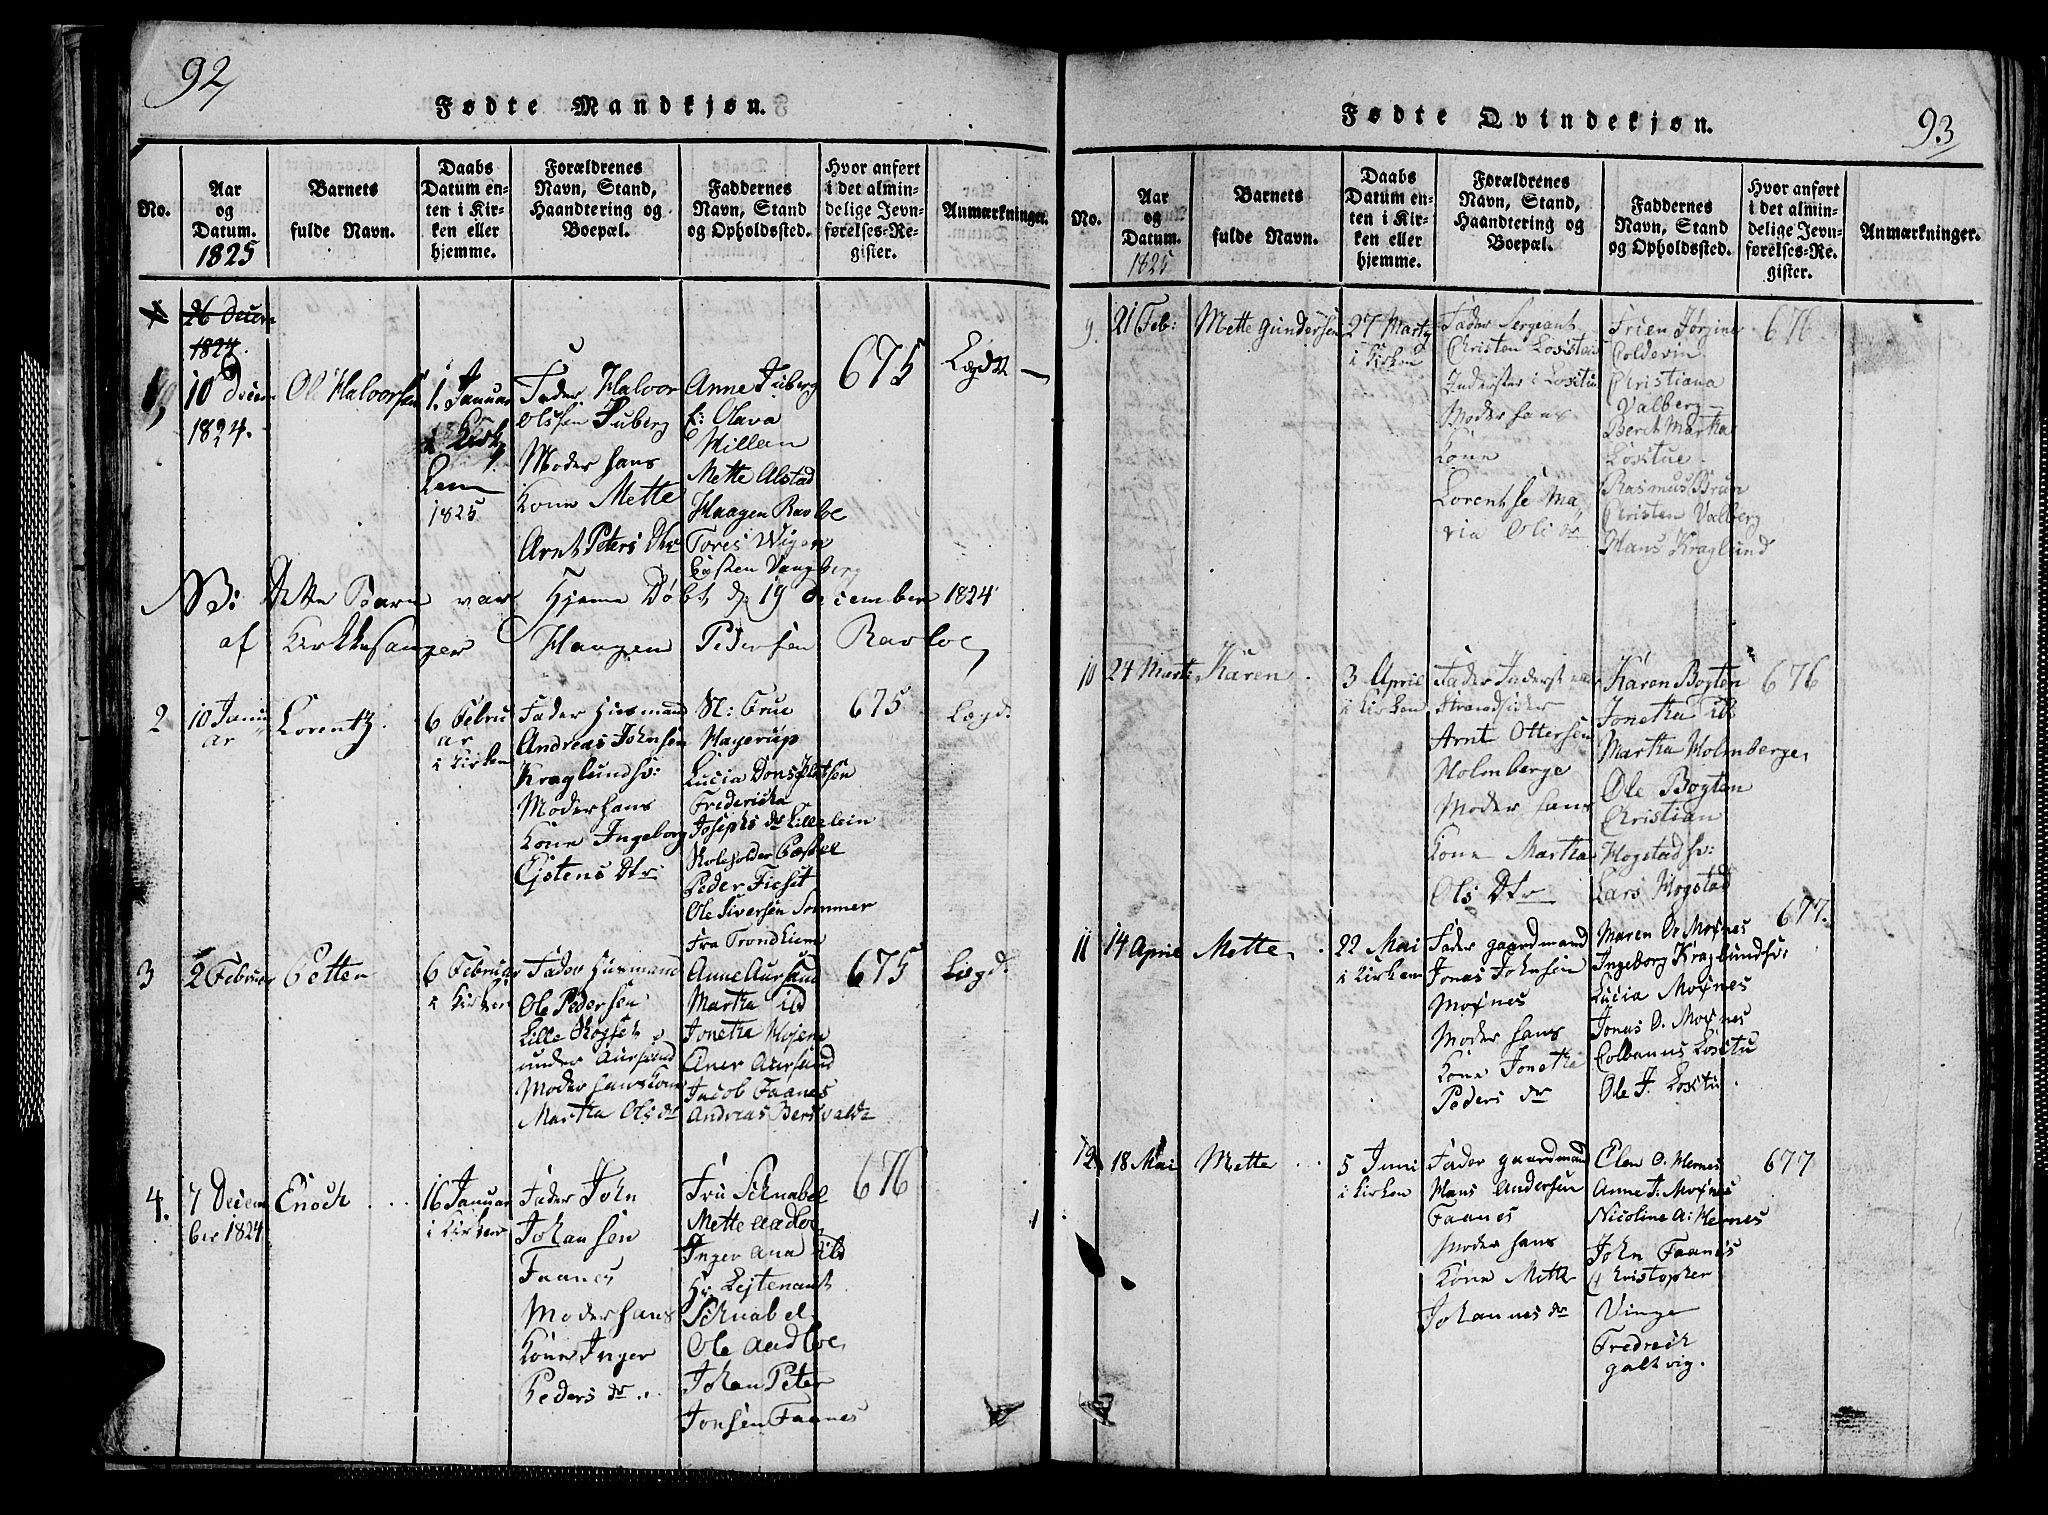 92,
Fødte Mandkjøn.
No.
Aar
og
Datum.
1825
Barnets
fulde Navn.
Daabs
Datum en-
ten i Kir-
ken eller
hjemme.
Forældrenes
Navn, Stand,
Haandtering og
Boepæl.
Faddernes
Navn, Stand
og Opholdssted.
Hvor anført
i det almin-
delige Jevn-
førelses-Re-
gister.
Anmærkninger.
26 Decem
1824.
10 Decem
1824.
Ole Halvorsen
1. Januar
1825
Fader Halvor
Olssen Juberg
Moder hans
Kone Mette
Arnt Peters Dtr
Anne Juberg
E: Olava
Millem
Mette Alstad
Haagen Ravloe
Tores Wigen
675
Lægd
NB: Dette Barn var Hjeme Døbt d: 19 December 1824
af Kirkesanger Haagen Pedersen Ravloe,
2
10 Janu
ar
Lorentz.
6 Febru
ar
i Kirken
Fader Husmand
Andreas Johnsen
Kraglundsv:
Moder hans
Kone Ingeborg
Ejstens Dtr:
M: Frue
Hagerup
Lucia
Fredericka
Josephs dr Lillelein
Peder Fiesit
Ole Siversen Sommer
Fra Trondhiem
675
Lægd.
3
2 Februar
Petter
6 Februar
i Kirken
Fader Husmand
Ole Pedersen
Lille
under Aursand
Moder hans Kone
Martha Ols dr
Anne Aursand
Martha ild
Jonetha Mosene
Aner Aursand
Jacob Faanes
Andreas
675
Lægd.
4.
7 Decem
ber 1824
Enoch
16 Januar
i Kirken
Fader John
Johansen
Faanes
Moder hans
Kone Inger
Peders dr.
Fru Schnabel
Mette Aadloe
Inger Ana ild
Hr. Lejtenant
Schnabel
Ole Aadloe,
Johan Peter
Jonsen Faanes
676
93
Fødte Qvindekjøn.
No.
Aar
og
Datum.
1825
Barnets
fulde Navn.
Daabs
Datum en-
ten i Kir-
ken eller
hjemme.
Forældrenes
Navn, Stand,
Haandtering og
Boepæl.
Faddernes
Navn, Stand
og Opholdssted.
Hvor anført
i det almin-
delige Jevn-
førelses-Re-
gister.
Anmærkninger.
9.
21 Feb:
Mette Gundersen
27 Marty
i Kirken
Fader Sergeant
Christen Lositue
Inderster i Lositu
Moder hans
Kone
Lorentse Ma
ria Oli dr
Frien Jørgine
Coldevin
Christiana
Valberg
Berit Martha
Lositue.
Rasmus Brun
Christen Valberg
Hans Kraglund
676
10
24 Marts
Karen
3 April
i Kirken
Fader
Strandsider
Arnt Ottersen
Holmberge
Moder hans
Kone Martha
Ols Dtr
Karen Bogten
Jonetha ild
Martha Holmberge,
Ole Bogten
Christian
Hogstad sv:
Lars Hogstad
676
11
14 April
Mette,
22 Mai
i Kirken
Fader gaardmand
Jonas Johnsen
Moxnes
Moder hans
Kone Jonetha
Peders dr
Maren O. Moxnes
Ingeborg Kraglundsv:
Lucia Moxnes
Jonas O. Moxnes
Colbanus Lositu
Ole J. Lositu.
677.
12.
18 Mai
Mette
5 Juni
i Kirken
Fader gaardmand
Hans Andersen
Faanes
Moder hans
Kone Mette
Johannes dr
Elen O. Hernes
Anne J. Moxnes
Nicoline A: Hernes
John Faanes
Christopher
Vinge
Fredrich
galtvig.
677